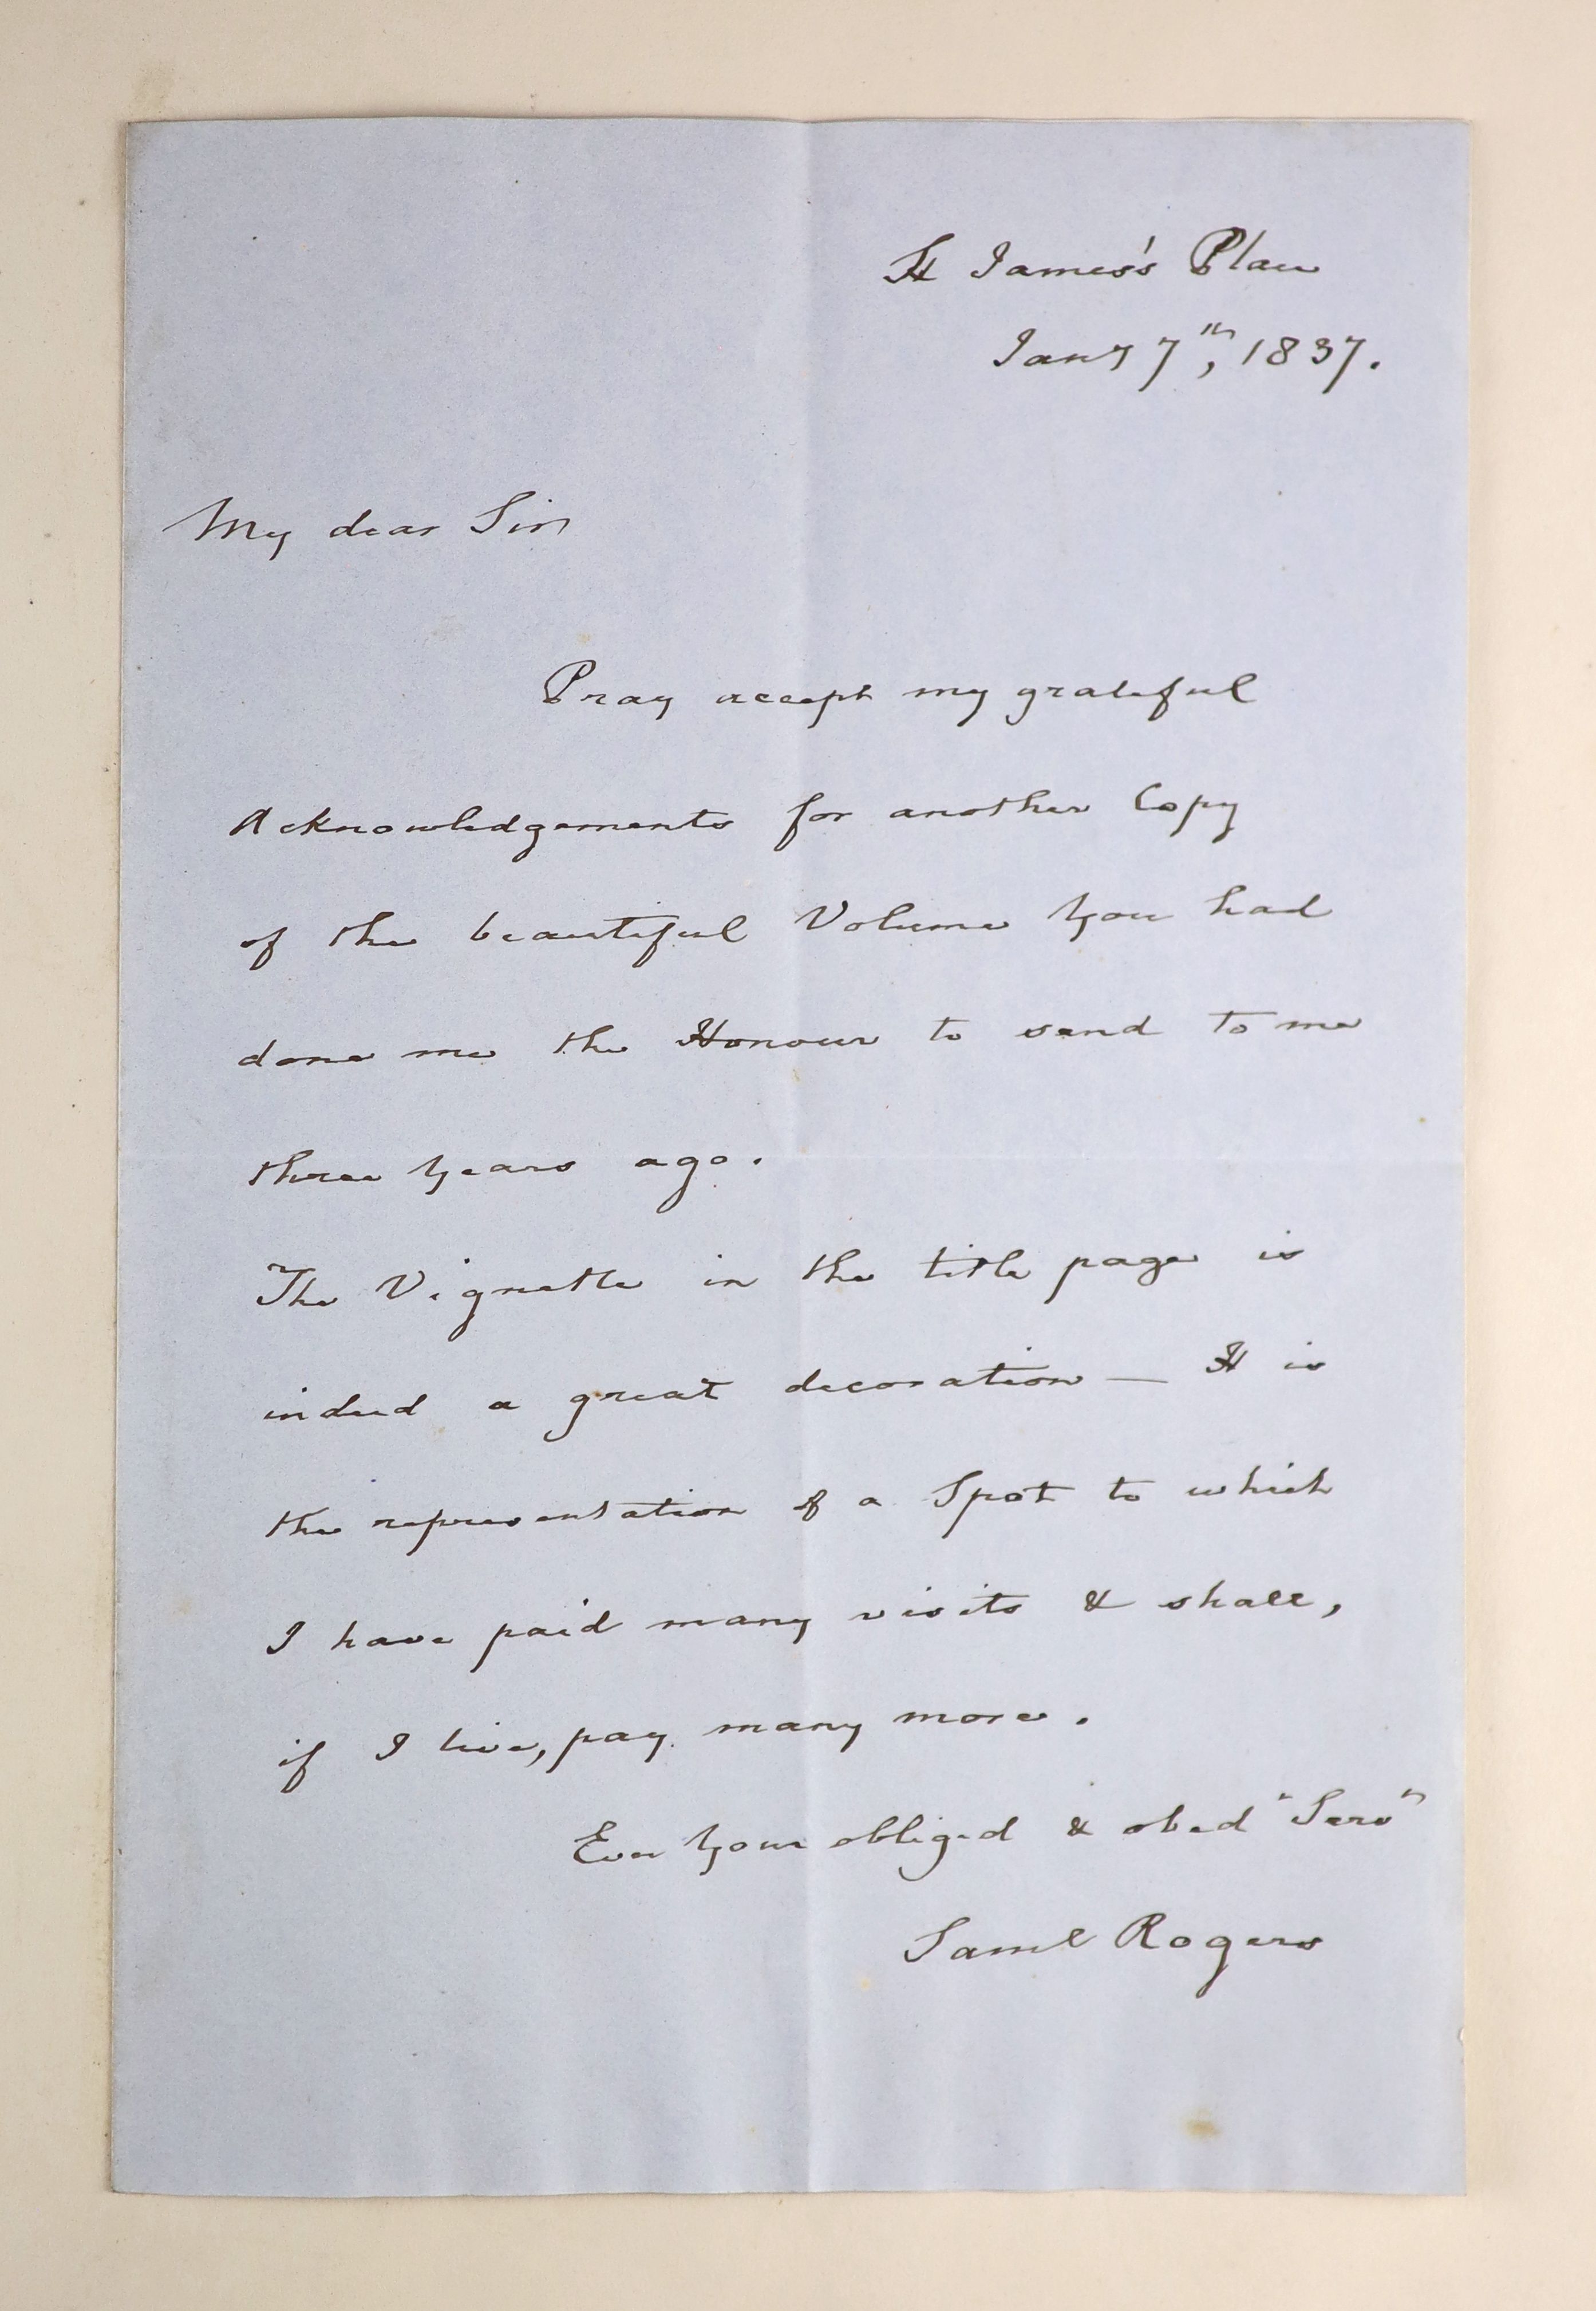 St James's Place
Jany 7th, 1837.
My dear Sir
Pray accept my grateful
Acknowledgements for another Copy
of the beautiful Volume you had
done me the Honour to send to me
three years ago.
The Vignette in the title page is
indeed a great decoration — It is
the representation of a Spot to which
I have paid many visits & shall,
if I live, pay many more.
Ever your obliged & obed "Serv"
Saml Rogers